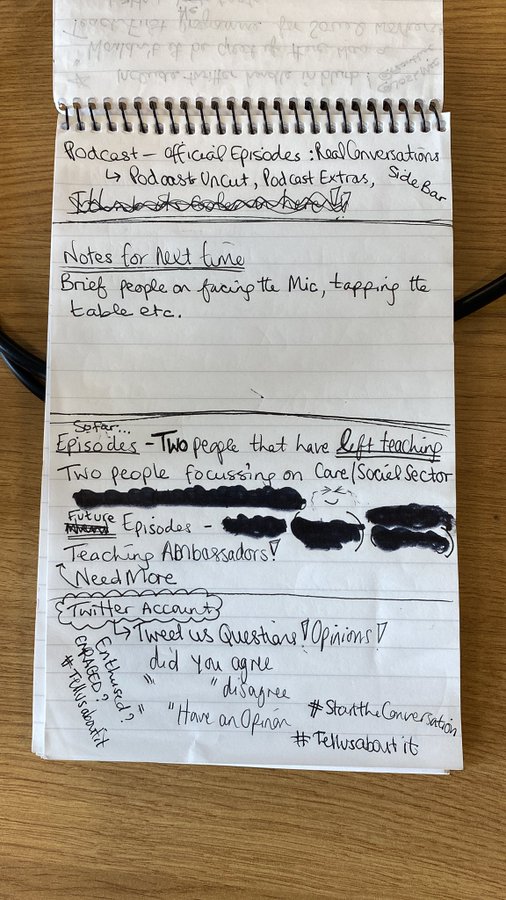 Teach First programme for Social workers
"Wouldn't it be great if there was a
* Include twitter handle in blurb!
Podcast - Official Episodes: Real Conversations
↳ Podcast Uncut, Podcast Extras, SideBar
Notes for next time
Brief people on facing the Mic, tapping the
table etc.
So far...
Episodes - Two people that have left teaching
Two people focussing on Care/Social Sector
Future Episodes -
Teaching Ambassadors!
Need More
Twitter Account
↳ Tweet us Questions! Opinions!
did you agree
" " disagree
" "Have an Opinion
#StarttheConversation
#Tellusaboutit
Enthused?
ENRAGED?
#Tellusaboutit